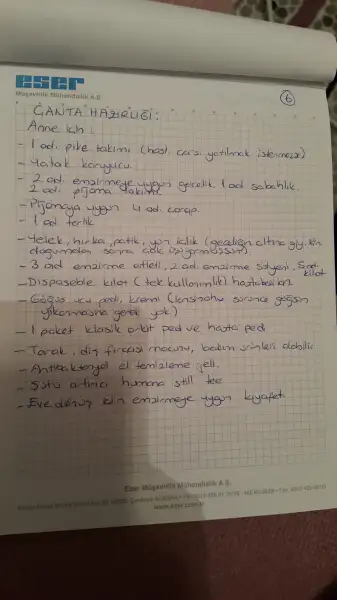 eser
Müşavirlik Mühendislik A.Ş.
6
ÇANTA HAZIRLIĞI:
Anne için:
- 1 ad. pike takımı (hast. çarş. yatılmak istenmezse)
- Yatak koruyucu.
- 2 ad. emzirmeye uygun gecelik. 1 ad sabahlık.
2 ad. pijama takımı
- Pijamaya uygun 4 ad. çorap.
- 1 ad. terlik
- Yelek, hırka, patik, yün içlik (geceliğin altına giy. için
doğumdan sonra çok üşüyormuşsun)
- 3 ad emzirme atleti, 2 ad. emzirme sütyeni, 5 ad.
külot
- Disposeble kilot (tek kullanımlık) hastane için
- Göğüs ucu pedi, kremi (lansinoh sürünce göğsün
yıkanmasına gerek yok)
- 1 paket klasik orkit ped ve hasta ped
- Tarak, diş fırçası macunu, bakım ürünleri olabilir
- Antibakteriyel el temizleme jeli.
- Sütü artırıcı humana still tee
- Eve dönüş için emzirmeye uygun kıyafet
Eser Müşavirlik Mühendislik A.Ş.
www.eser.com.tr